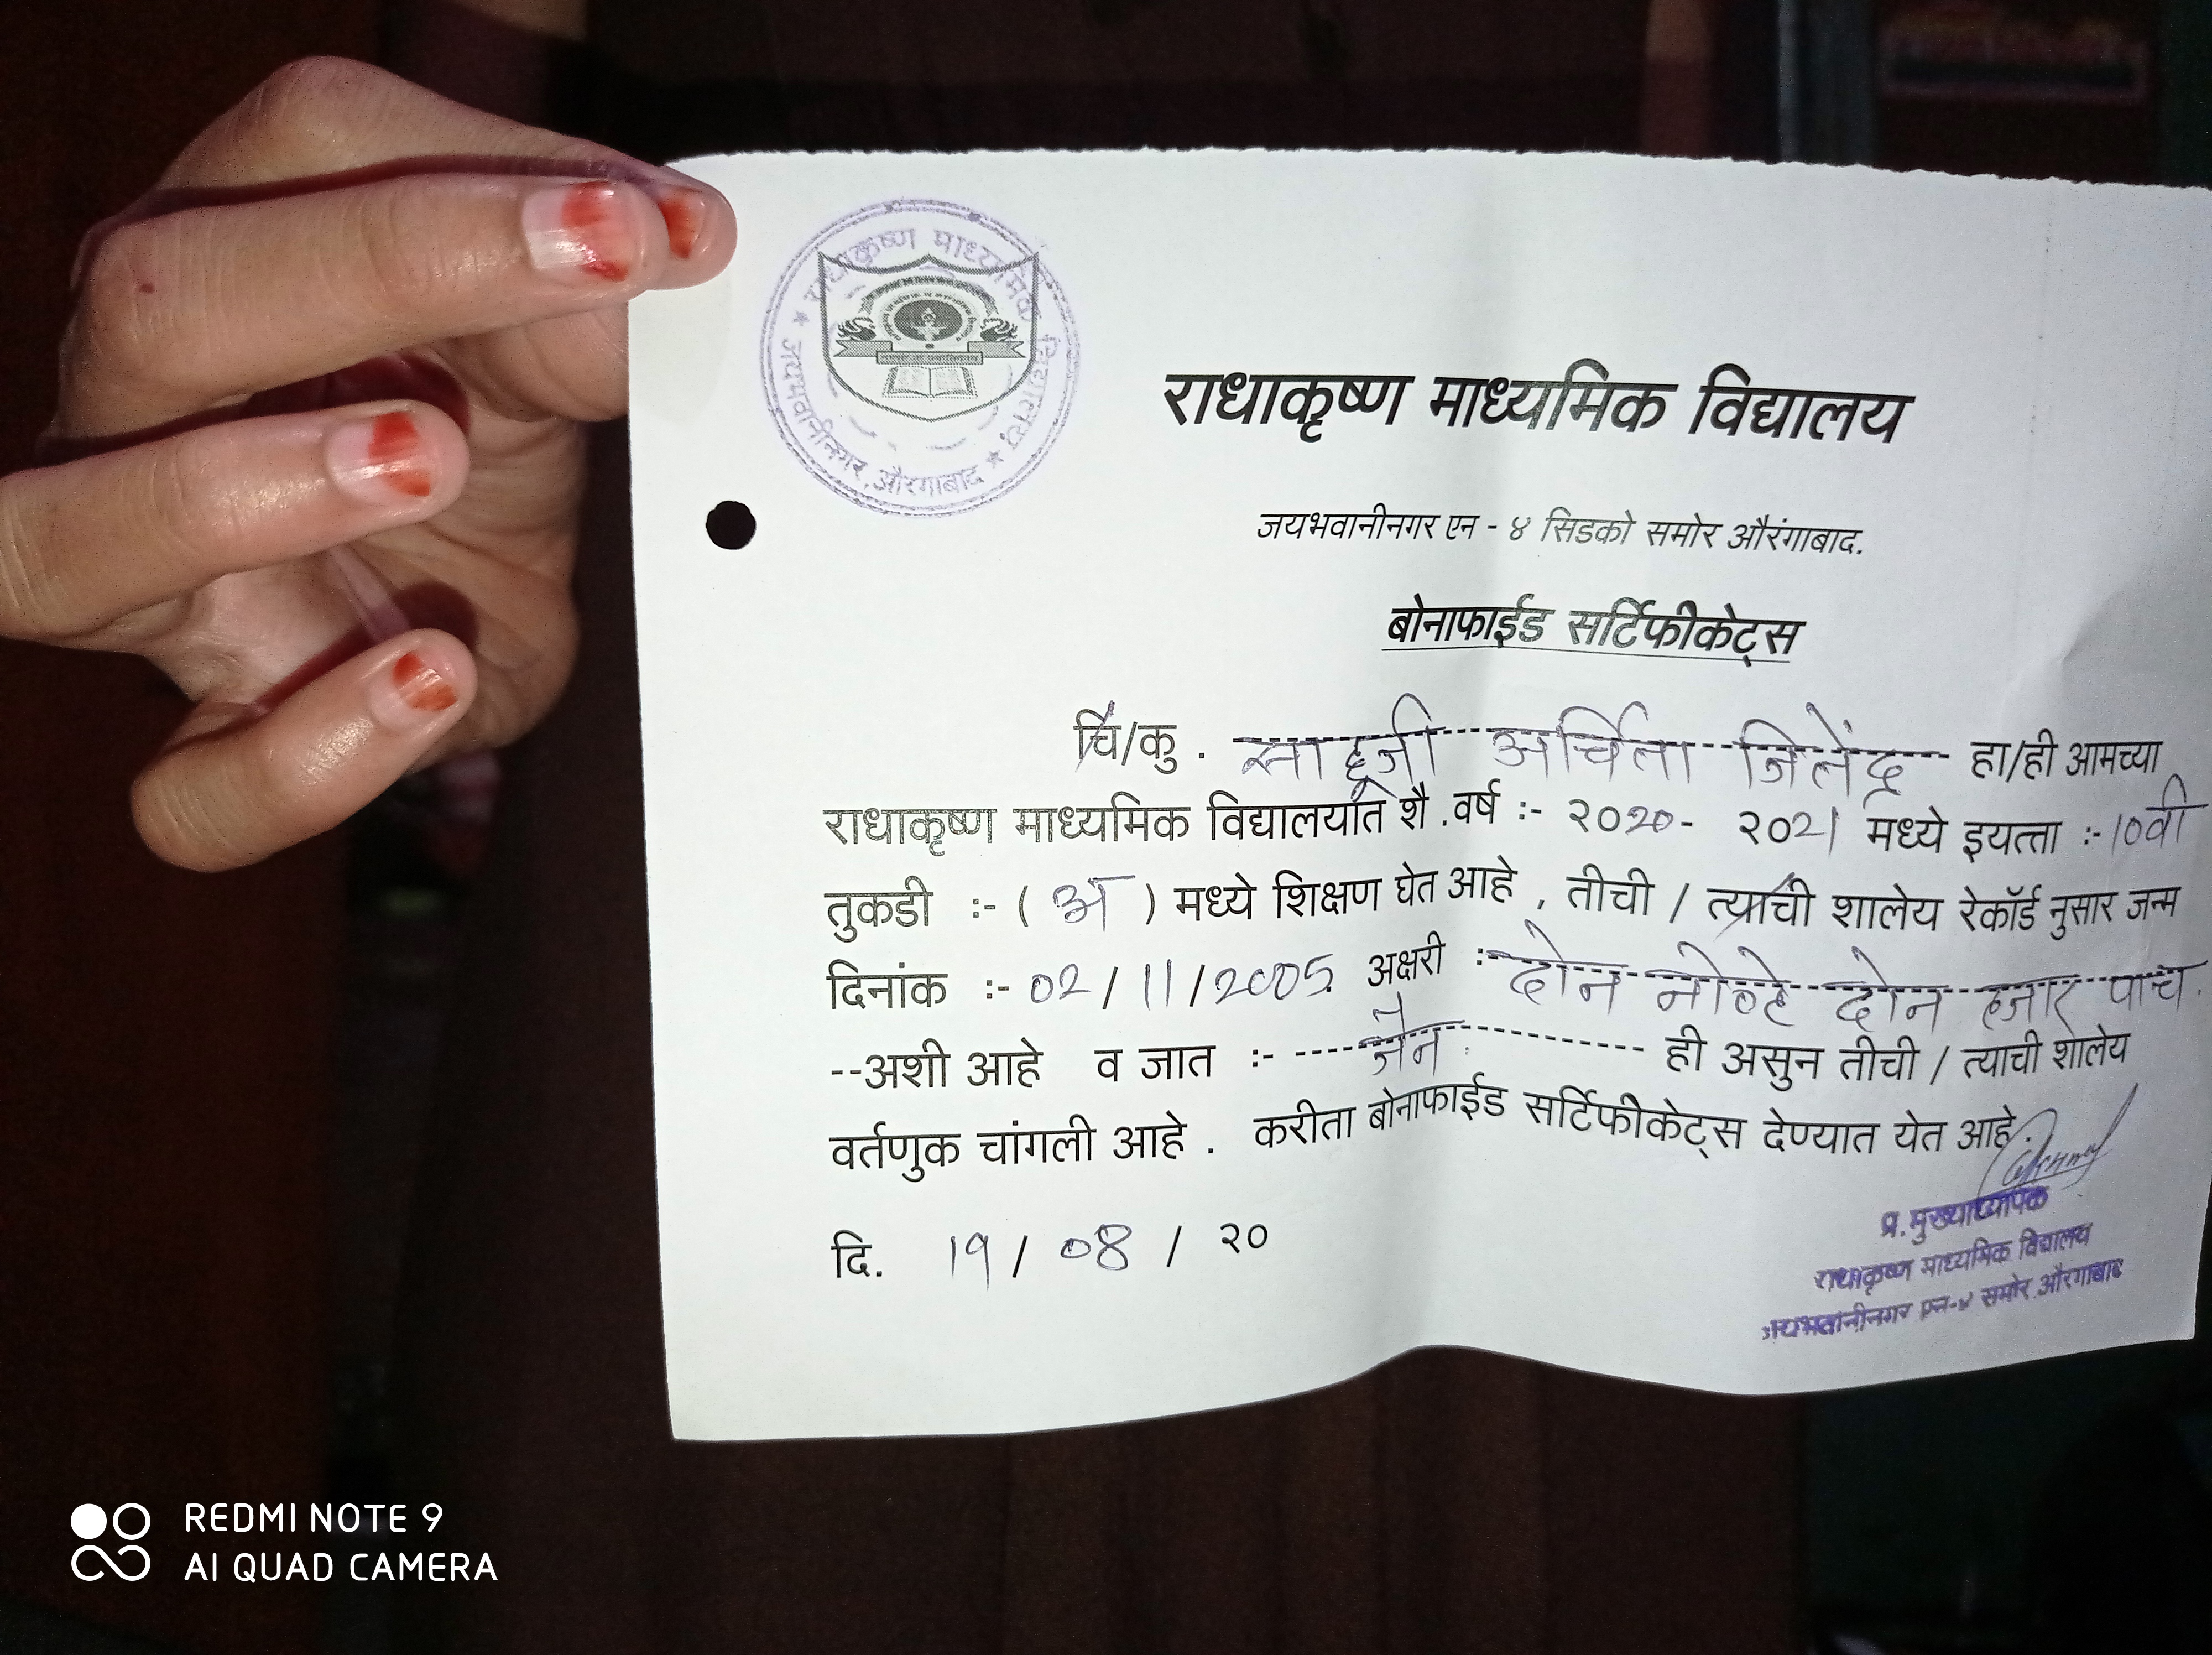 राधाकृष्ण माध्यमिक विद्यालय
★ जयभवानीनगर, औरगाबाद ★
राधाकृष्ण माध्यमिक विद्यालय
जयभवानीनगर एन - ४ सिडको समोर औरंगाबाद.
बोनाफाईड सर्टिफीकेट्स
चि/कु . साहूजी अर्चिता जितेंद्र हा/ही आमच्या
राधाकृष्ण माध्यमिक विद्यालयात शै .वर्ष :- २०20- २०21 मध्ये इयत्ता :-10वी
तुकडी :- ( अ ) मध्ये शिक्षण घेत आहे , तीची / त्याची शालेय रेकॉर्ड नुसार जन्म
दिनांक :- 02/11/2005 अक्षरी :- दोन नोव्हे दोन हजार पाच.
--अशी आहे व जात :- ---- जैन --------- ही असुन तीची / त्याची शालेय
वर्तणुक चांगली आहे . करीता बोनाफाईड सर्टिफीकेट्स देण्यात येत आहे.
दि. 19/ 08 / २०
प्र.मुख्याध्यापक
राधाकृष्ण माध्यमिक विद्यालय
जयभवानीनगर एन-४ समोर.औरगाबाद
REDMI NOTE 9
AI QUAD CAMERA